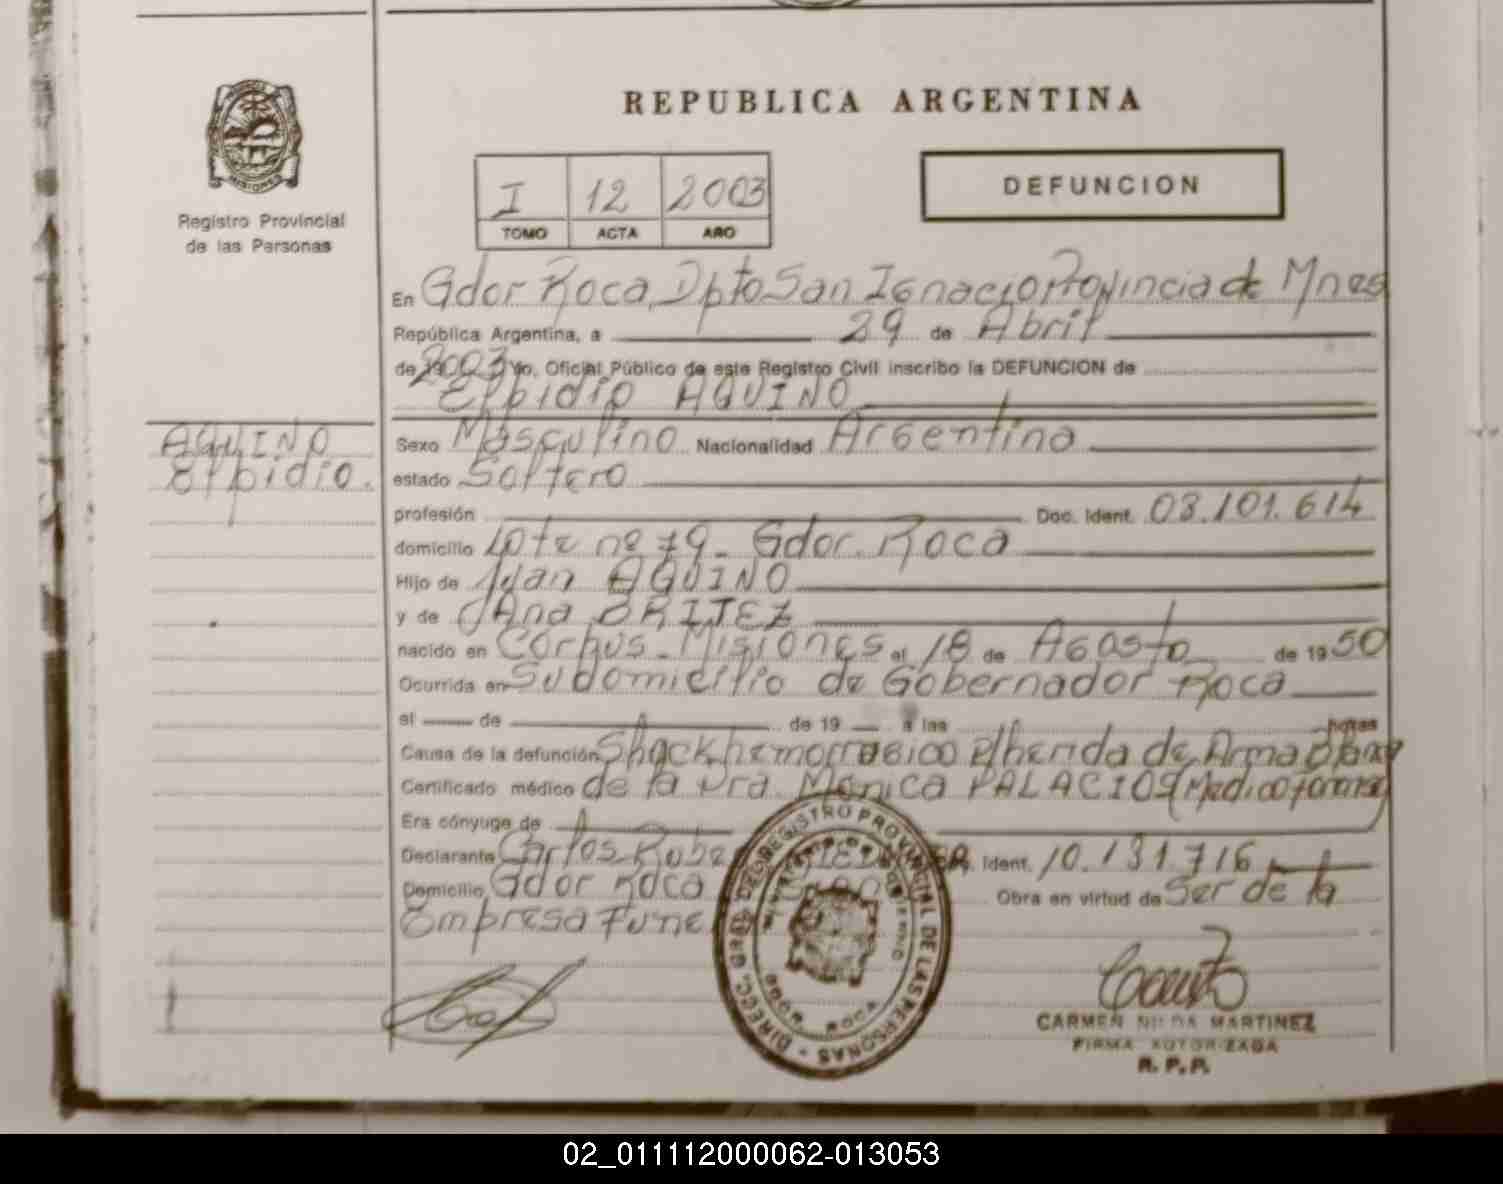 REPUBLICA ARGENTINA
MISIONES
Registro Provincial
de las Personas
I 12 2003
TOMO ACTA AÑO
DEFUNCION
En Gdor Roca, Dpto San Ignacio Provincia de Mnes
República Argentina, a 29 de Abril
de 2003 Yo, Oficial Público de este Registro Civil inscribo la DEFUNCION de
Elpidio AQUINO
AQUINO
Elpidio.
Sexo Masculino Nacionalidad Argentina
estado Soltero
profesión Doc. Ident. 08.101.614
domicilio Lote nº 79- Gdor. Roca
Hijo de Juan AQUINO
y de Ana BRITEZ
nacido en Corpus- Misiones el 18 de Agosto de 1950
Ocurrida en Su domicilio de Gobernador Roca
el de de 19 a las horas
Causa de la defunción Shock hemorragico P/herida de Arma Blanca
Certificado médico de la Dra. Monica PALACIOS (Medico forense)
Era cónyuge de
Declarante Carlos Ident. 10.131.716
Domicilio Gdor Roca Obra en virtud de Ser de la
Empresa Fune
DIRECC. GRAL. DEL REGISTRO PROVINCIAL DE LAS PERSONAS
GDOR. ROCA
CARMEN NILDA MARTINEZ
FIRMA AUTORIZADA
R. P. P.
02_011112000062-013053